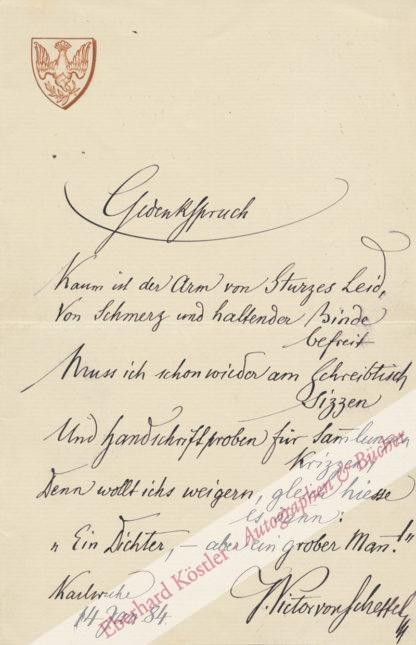 Gedenkspruch
Kaum ist der Arm von Sturzes Leid,
Von Schmerz und haltender Binde
befreit
Muss ich schon wieder am Schreibtisch
sizzen
Und Handschriftproben für Sammlungen
krizzen
Denn wollt ichs weigern, gleich hiesse
es dann:
„Ein Dichter, – aber ein grober Mann!"
Karlsruhe
14 Jan 84.
J. Victor von Scheffel
Eberhard Köstler Autographen & Bücher